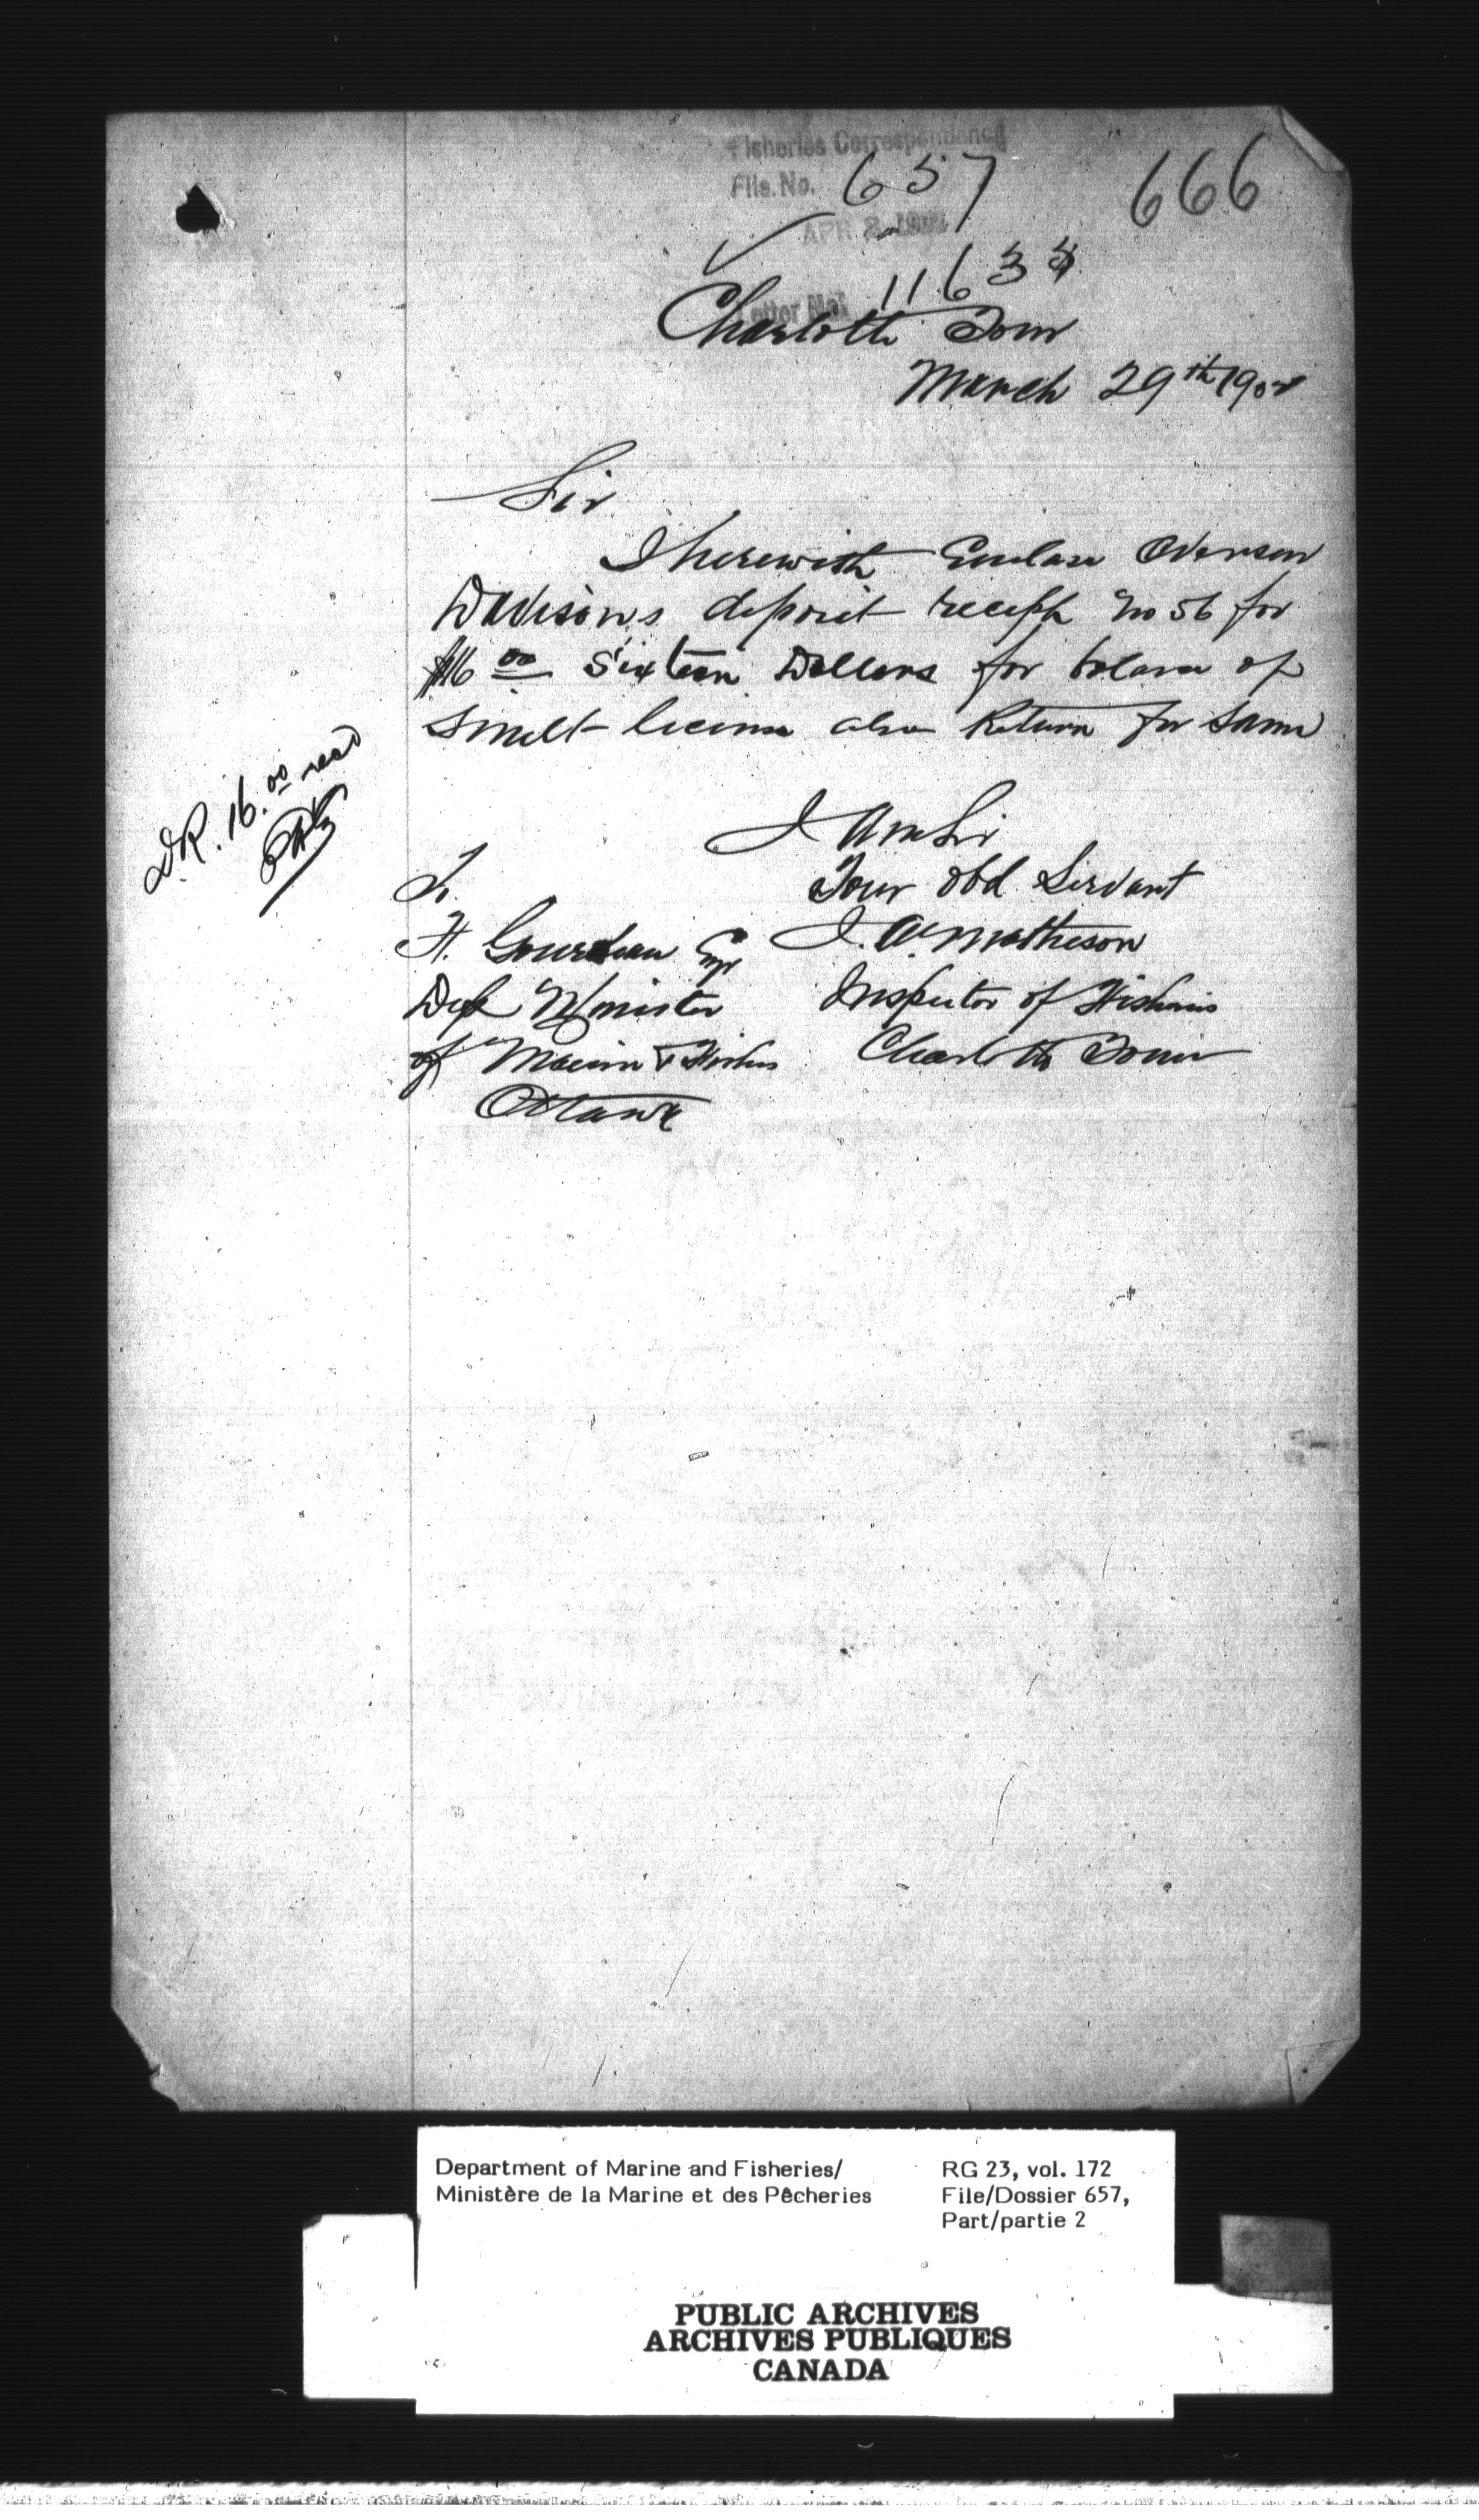 Fisheries Correspondence
File. No. 657
666
APR 2
11635
Letter No.
Charlotte Town
March 29th 190
Sir
I herewith Enclose Overseer
Davisons deposit receipt No 56 for
$16 00 Sixteen Dollars for balance of
Smelt licenses also Return for same
D.R. 16.00 recd
I Am Sir
Your Obd Servant
J. A. Matheson
Inspector of Fisheries
Charlotte Town
To
F. Gourdeau Esqr
Dept Minister
of Marine & Fisheries
Ottawa
Department of Marine and Fisheries/
Ministère de la Marine et des Pêcheries
RG 23, vol. 172
File/Dossier 657,
Part/partie 2
PUBLIC ARCHIVES
ARCHIVES PUBLIQUES
CANADA